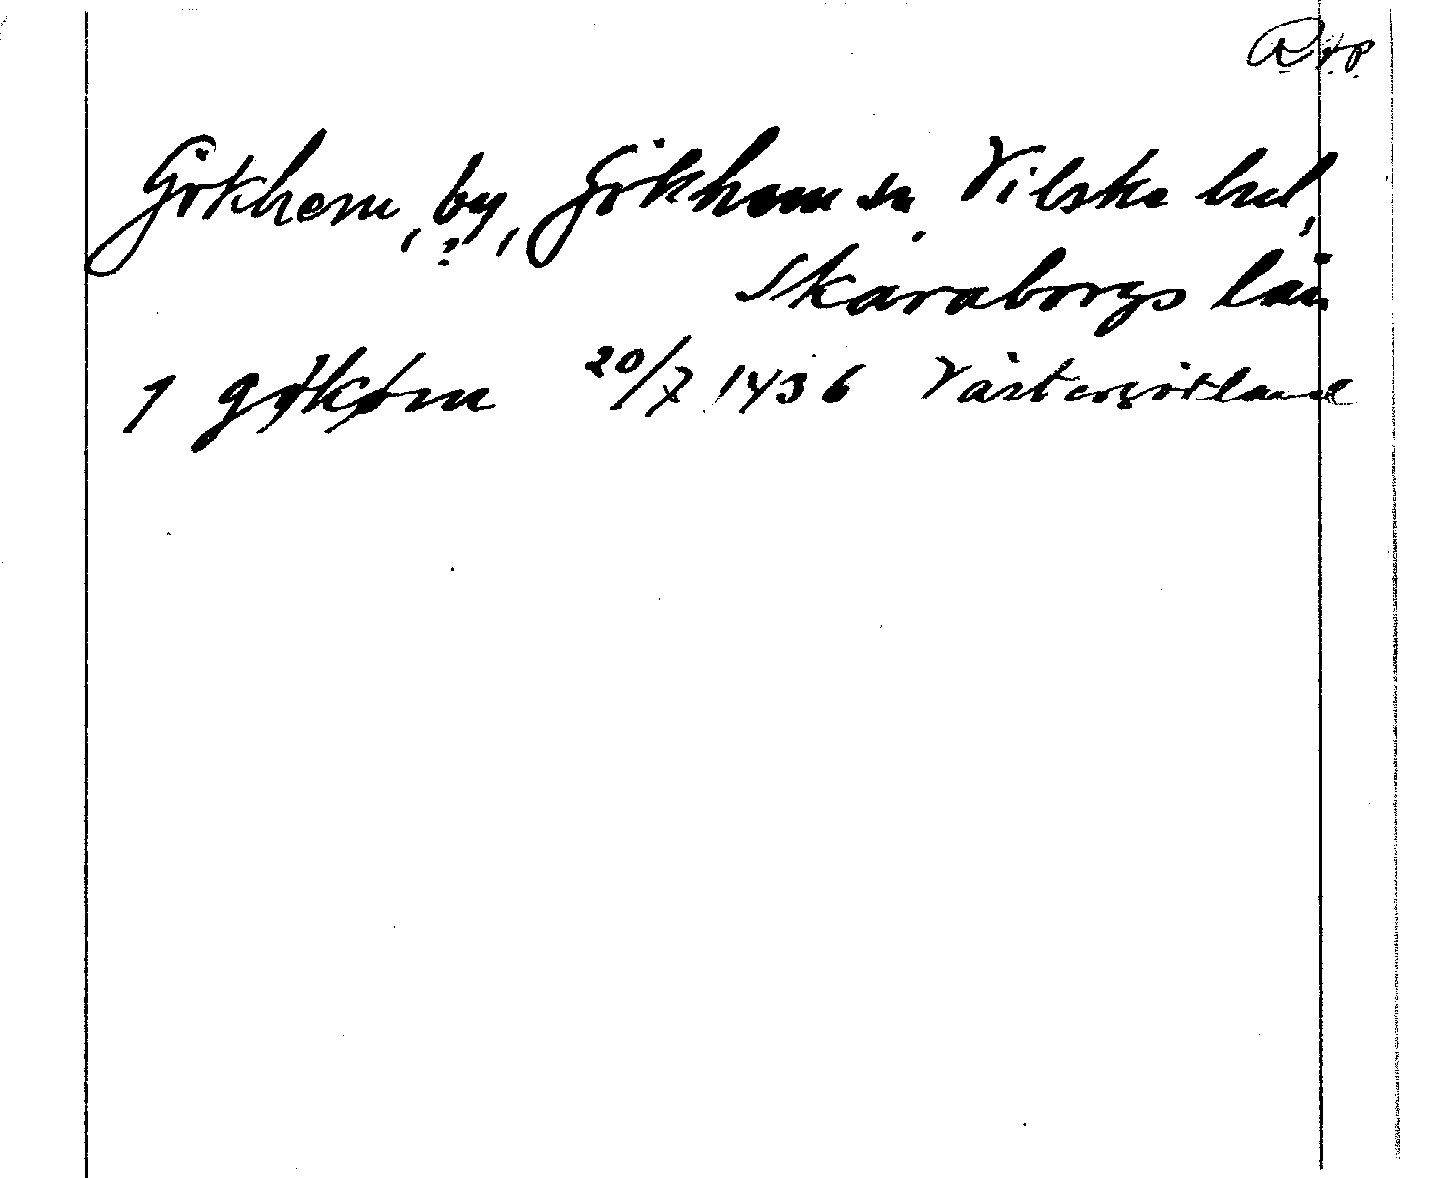 R.A.P.
Gökhem, by, Gökhem sn. Vilske hd,
?
Skaraborgs län
1 gøkøm 20/7 1436 Västergötland